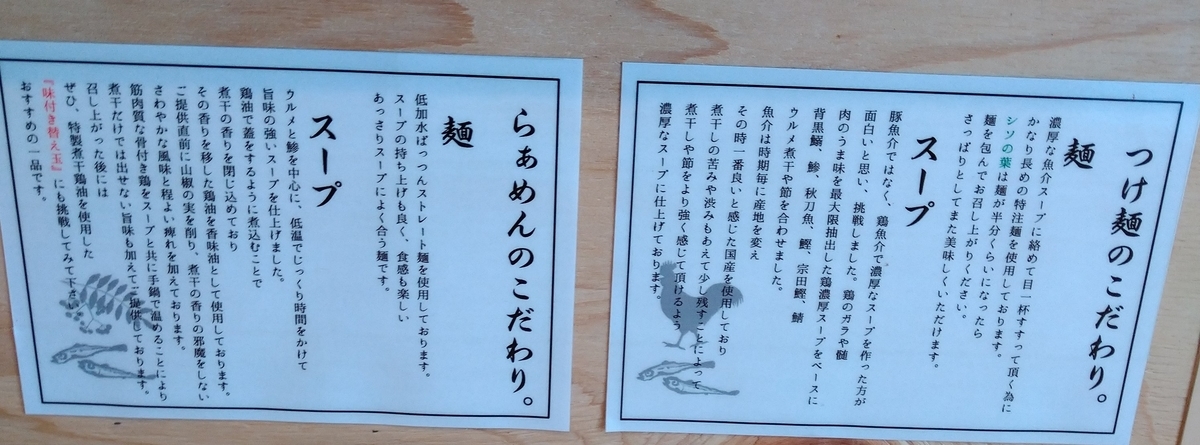 つけ麺のこだわり。
麺
濃厚な魚介スープに絡めて目一杯すすって頂く為に
かなり長めの特注麺を使用しております。
シソの葉は麺が半分くらいになったら
麺を包んでお召し上がりください。
さっぱりとしてまた美味しくいただけます。
スープ
豚魚介ではなく、鶏魚介で濃厚なスープを作った方が
面白いと思い、挑戦しました。鶏のガラや髄
肉のうま味を最大限抽出した鶏濃厚スープをベースに
背黒鰯、鯵、秋刀魚、鰹、宗田鰹、鯖
ウルメ煮干や節を合わせました。
魚介は時期毎に産地を変え
その時一番良いと感じた国産を使用しており
煮干しの苦みや渋みもあえて少し残すことによって
煮干しや節をより強く感じて頂けるよう
濃厚なスープに仕上げております。
らぁめんのこだわり。
麺
低加水ぱっつんストレート麺を使用しております。
スープの持ち上げも良く、食感も楽しい
あっさりスープによく合う麺です。
スープ
ウルメと鯵を中心に、低温でじっくり時間をかけて
旨味の強いスープを仕上げました。
鶏油で蓋をするように煮込むことで
煮干の香りを閉じ込めており
その香りを移した鶏油を香味油として使用しております。
ご提供直前に山椒の実を削り、煮干の香りの邪魔をしない
さわやかな風味と程よい痺れを加えております。
筋肉質な骨付き鶏をスープと共に手鍋で温めることにより
煮干だけでは出せない旨味も加えてご提供しております。
召し上がった後には
ぜひ、特製煮干鶏油を使用した
『味付き替え玉』にも挑戦してみて下さい。
おすすめの一品です。